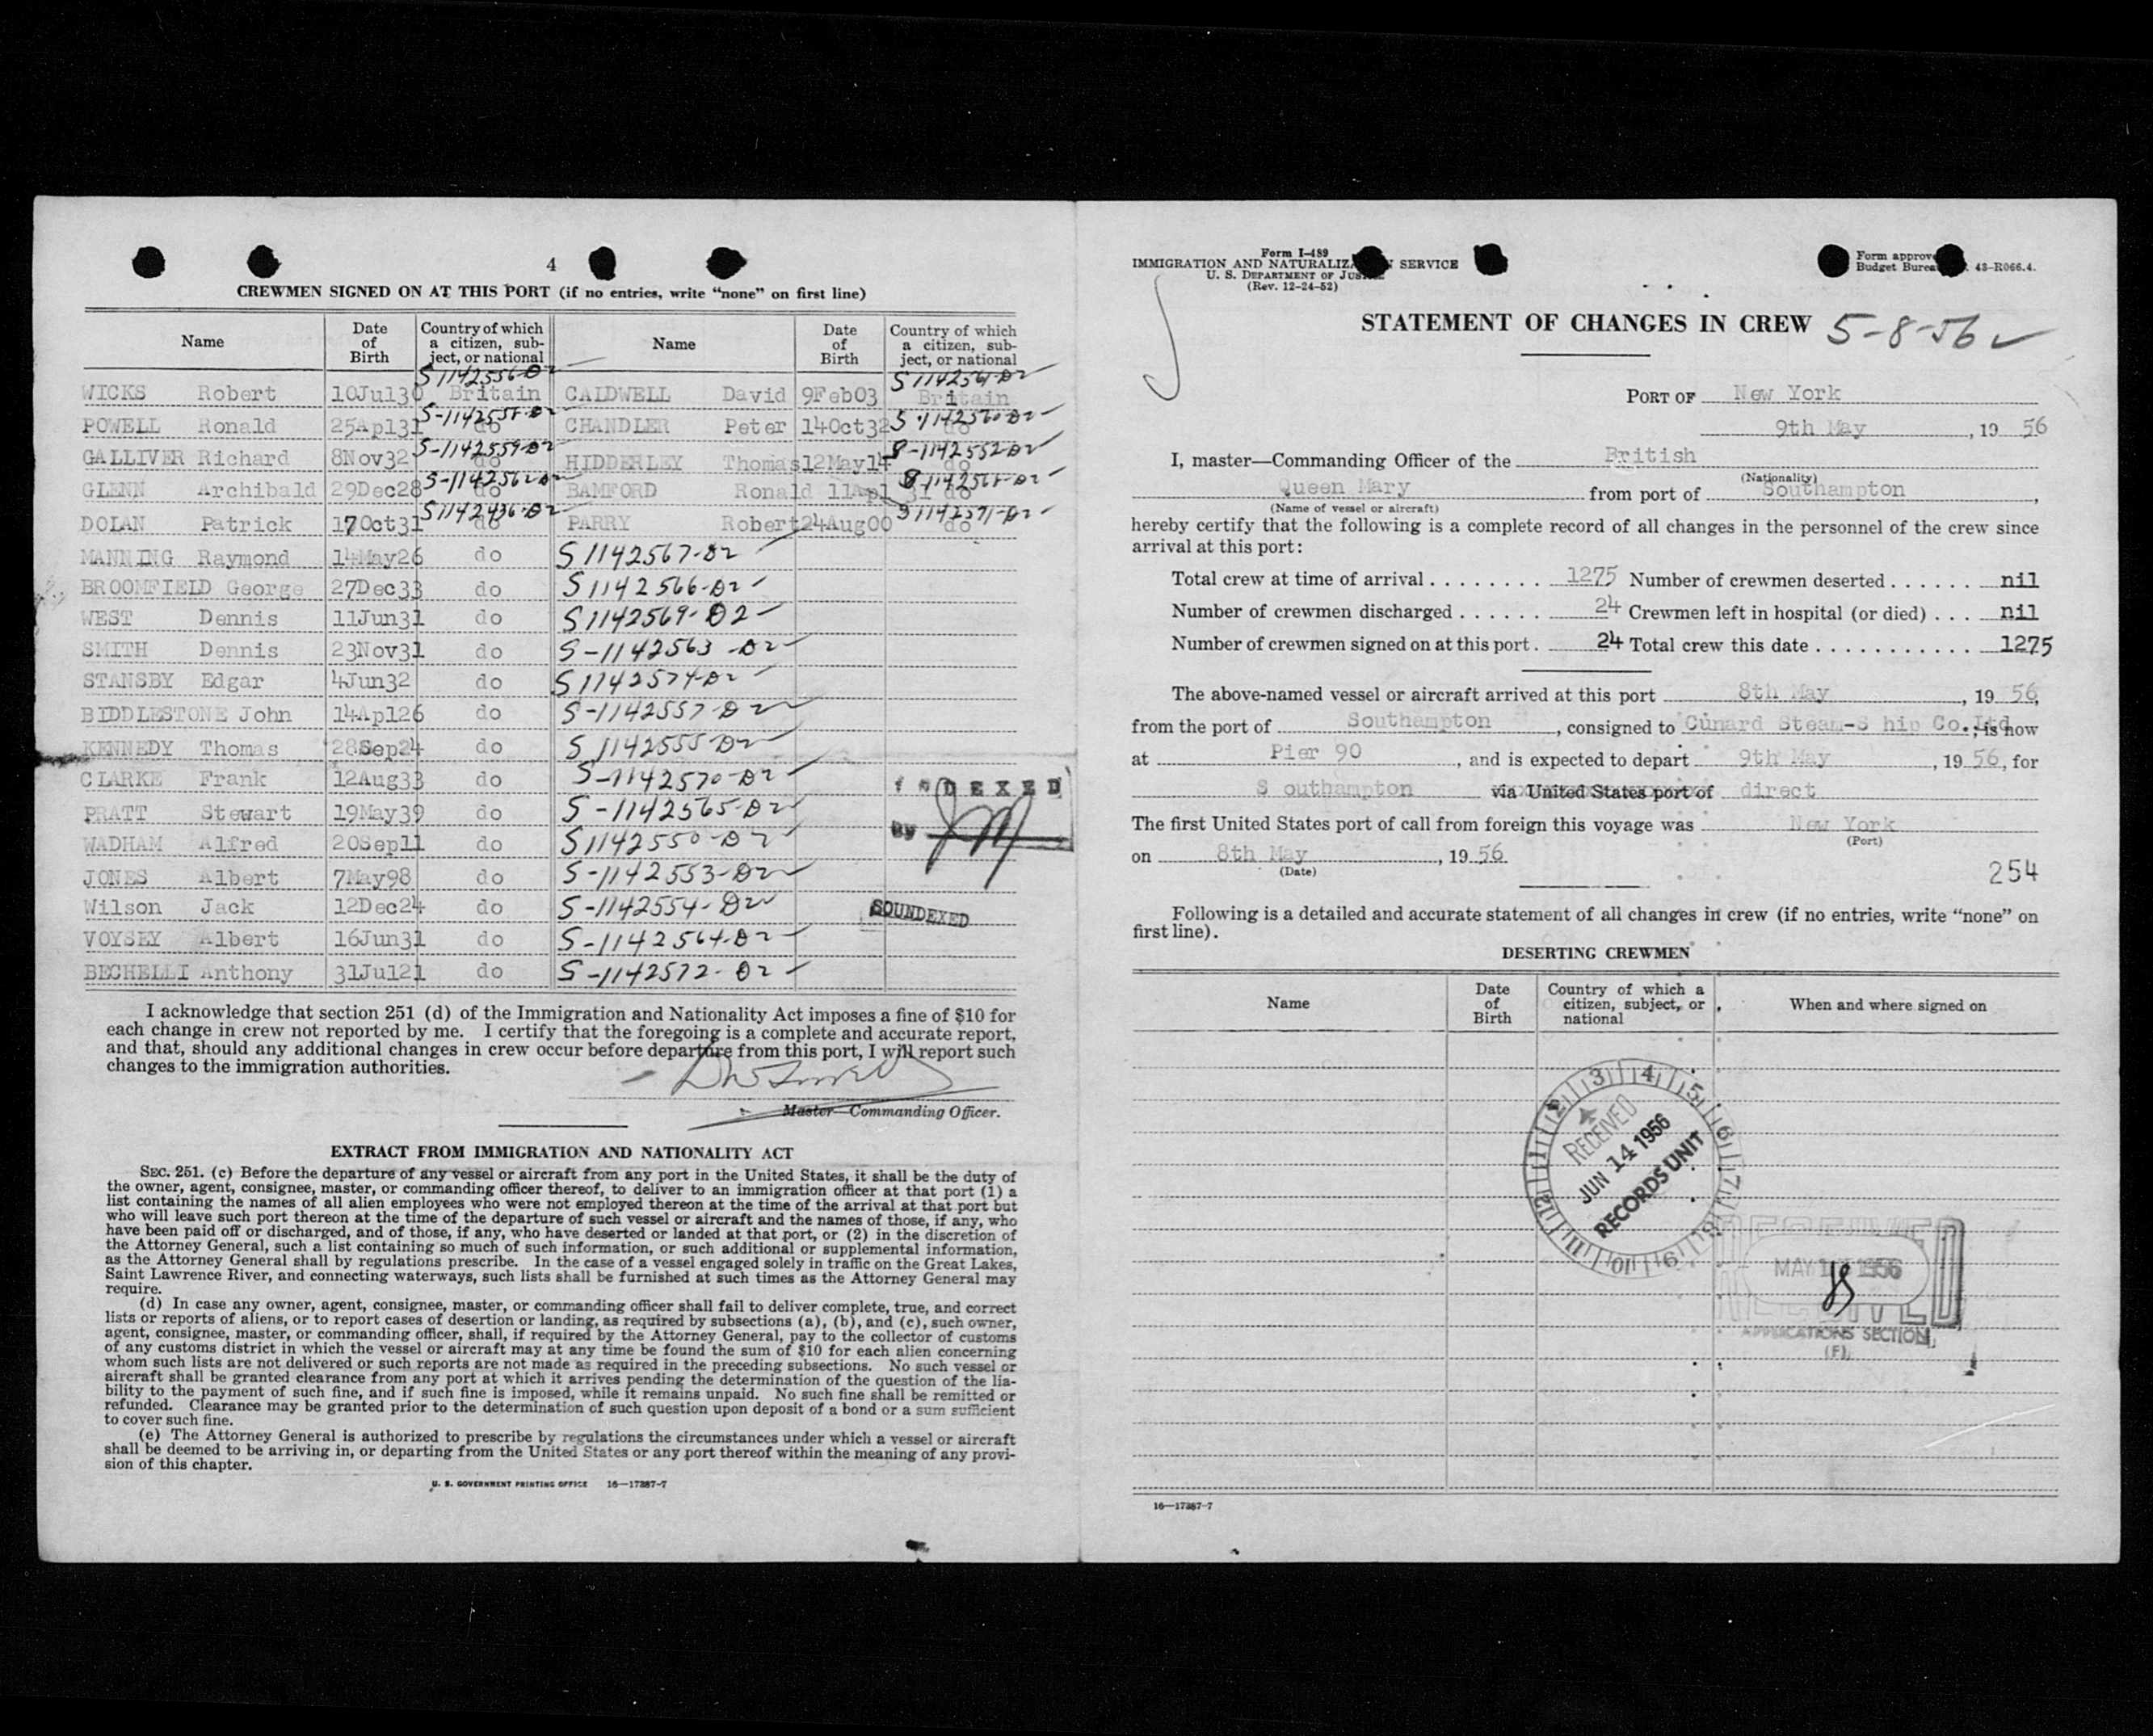 4
CREWMEN SIGNED ON AT THIS PORT (if no entries, write “none” on first line)
Name Date of Birth Country of which a citizen, subject, or national Name Date of Birth Country of which a citizen, subject, or national
S 1142556-D2 S 1142561-D2
WICKS Robert 10Jul30 Britain CALDWELL David 9Feb03 Britain
S-1142558-D2 S-1142560-D2
POWELL Ronald 25Apl31 do CHANDLER Peter 14Oct32 do
S-1142559-D2 S-1142552-D2
GALLIVER Richard 8Nov32 do HIDDERLEY Thomas 12May14 do
S-1142562-D2 S-1142568-D2
GLENN Archibald 29Dec28 do BAMFORD Ronald 11Apl 31 do
S1142436-D2 S1142571-D2
DOLAN Patrick 17Oct31 do PARRY Robert 24Aug00 do
MANNING Raymond 14May26 do S 1142567-D2
BROOMFIELD George 27Dec33 do S 1142566-D2
WEST Dennis 11Jun31 do S1142569-D2
SMITH Dennis 23Nov31 do S-1142563-D2
STANSBY Edgar 4Jun32 do S1142574-D2
BIDDLESTONE John 14Apl26 do S-1142557-D2
KENNEDY Thomas 28Sep24 do S 1142555-D2
CLARKE Frank 12Aug33 do S-1142570-D2
PRATT Stewart 19May39 do S-1142565-D2
WADHAM Alfred 20Sep11 do S1142550-D2
JONES Albert 7May98 do S-1142553-D2
Wilson Jack 12Dec24 do S-1142554-D2
VOYSEY Albert 16Jun31 do S-1142564-D2
BECHELLI Anthony 31Jul21 do S-1142572-D2
INDEXED
BY JM
SOUNDEXED
I acknowledge that section 251 (d) of the Immigration and Nationality Act imposes a fine of $10 for
each change in crew not reported by me. I certify that the foregoing is a complete and accurate report,
and that, should any additional changes in crew occur before departure from this port, I will report such
changes to the immigration authorities.
Master—Commanding Officer.
EXTRACT FROM IMMIGRATION AND NATIONALITY ACT
SEC. 251. (c) Before the departure of any vessel or aircraft from any port in the United States, it shall be the duty of
the owner, agent, consignee, master, or commanding officer thereof, to deliver to an immigration officer at that port (1) a
list containing the names of all alien employees who were not employed thereon at the time of the arrival at that port but
who will leave such port thereon at the time of the departure of such vessel or aircraft and the names of those, if any, who
have been paid off or discharged, and of those, if any, who have deserted or landed at that port, or (2) in the discretion of
the Attorney General, such a list containing so much of such information, or such additional or supplemental information,
as the Attorney General shall by regulations prescribe. In the case of a vessel engaged solely in traffic on the Great Lakes,
Saint Lawrence River, and connecting waterways, such lists shall be furnished at such times as the Attorney General may
require.
(d) In case any owner, agent, consignee, master, or commanding officer shall fail to deliver complete, true, and correct
lists or reports of aliens, or to report cases of desertion or landing, as required by subsections (a), (b), and (c), such owner,
agent, consignee, master, or commanding officer, shall, if required by the Attorney General, pay to the collector of customs
of any customs district in which the vessel or aircraft may at any time be found the sum of $10 for each alien concerning
whom such lists are not delivered or such reports are not made as required in the preceding subsections. No such vessel or
aircraft shall be granted clearance from any port at which it arrives pending the determination of the question of the lia-
bility to the payment of such fine, and if such fine is imposed, while it remains unpaid. No such fine shall be remitted or
refunded. Clearance may be granted prior to the determination of such question upon deposit of a bond or a sum sufficient
to cover such fine.
(e) The Attorney General is authorized to prescribe by regulations the circumstances under which a vessel or aircraft
shall be deemed to be arriving in, or departing from the United States or any port thereof within the meaning of any provi-
sion of this chapter.
U. S. GOVERNMENT PRINTING OFFICE 16—17387-7
Form I-489
IMMIGRATION AND NATURALIZ N SERVICE
U. S. DEPARTMENT OF JUSTICE
(Rev. 12-24-52)
Form approv
Budget Burea 43-R066.4.
STATEMENT OF CHANGES IN CREW 5-8-56
PORT OF New York
9th May, 19 56
I, master—Commanding Officer of the British
(Nationality)
Queen Mary from port of Southampton,
(Name of vessel or aircraft)
hereby certify that the following is a complete record of all changes in the personnel of the crew since
arrival at this port:
Total crew at time of arrival . . . . . . . . 1275 Number of crewmen deserted . . . . . . nil
Number of crewmen discharged . . . . . . 24 Crewmen left in hospital (or died) . . . nil
Number of crewmen signed on at this port . 24 Total crew this date . . . . . . . . . . . 1275
The above-named vessel or aircraft arrived at this port 8th May, 19 56,
from the port of Southampton, consigned to Cunard Steam-S hip Co.,Ltd.; is now
at Pier 90, and is expected to depart 9th May, 19 56, for
S outhampton via United States port of direct
The first United States port of call from foreign this voyage was New York
(Port)
on 8th May, 19 56
(Date)
254
Following is a detailed and accurate statement of all changes in crew (if no entries, write “none” on
first line).
DESERTING CREWMEN
Name Date of Birth Country of which a citizen, subject, or national When and where signed on
1 2 3 4 5 6 7 8 9 10 11 12
RECEIVED
JUN 14 1956
RECORDS UNIT
RECEIVED
MAY 1956
APPLICATIONS SECTION
(F)
16—17387-7